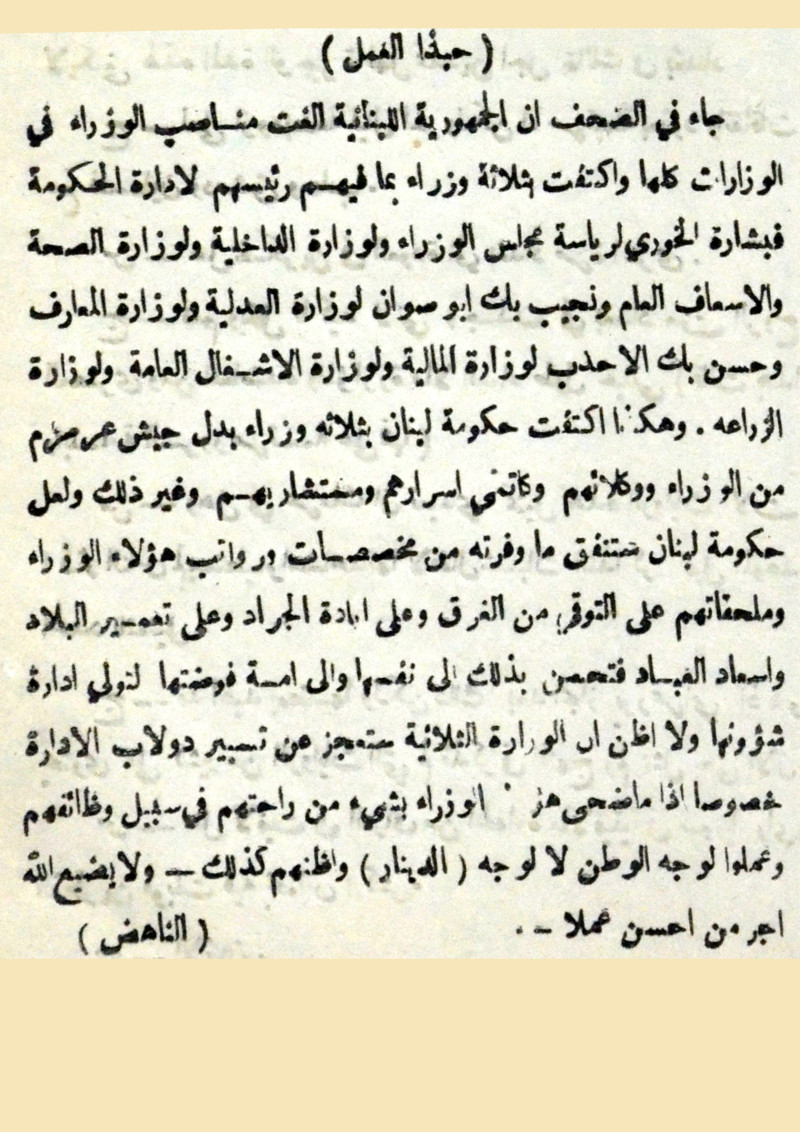 ( حبذا العمل )
جاء في الصحف ان الجمهورية اللبنانية الغت منــاصب الوزراء في
الوزارات كلها واكتفت بثلاثة وزراء بما فيهــم رئيسهم لادارة الحكومة
فبشارة الخوري لرياسة مجلس الوزراء ولوزارة الداخلية ولوزارة الصحة
والاسعاف العام ونجيب بك ابو صوان لوزارة العدلية ولوزارة المعارف
وحسن بك الاحدب لوزارة المالية ولوزارة الاشــغال العامة ولوزارة
الزراعه . وهكذا اكتفت حكومة لبنان بثلاثه وزراء بدل جيش عرمرم
من الوزراء ووكلائهم وكاتمي اسرارهم ومستشاريهــم وغير ذلك ولعل
حكومة لبنان ستنفق ما وفرته من مخصصــات ورواتب هؤلاء الوزراء
وملحقاتهم على التوقي من الغرق وعلى ابادة الجراد وعلى تعمــير البلاد
واسعاد العبــاد فتحسن بذلك الى نفسها والى امــة فوضتها لتولي ادارة
شؤونها ولا اظن ان الوزارة الثلاثية ستعجز عن تسيير دولاب الادارة
خصوصا اذا ماضحى الوزراء بشيء من راحتهم في سبيل وظائفهم
وعملوا لوجه الوطن لا لوجه ( الدينار ) واظنهم كذلك — ولا يضيع الله
اجر من احسن عملا — .
( الناهض )